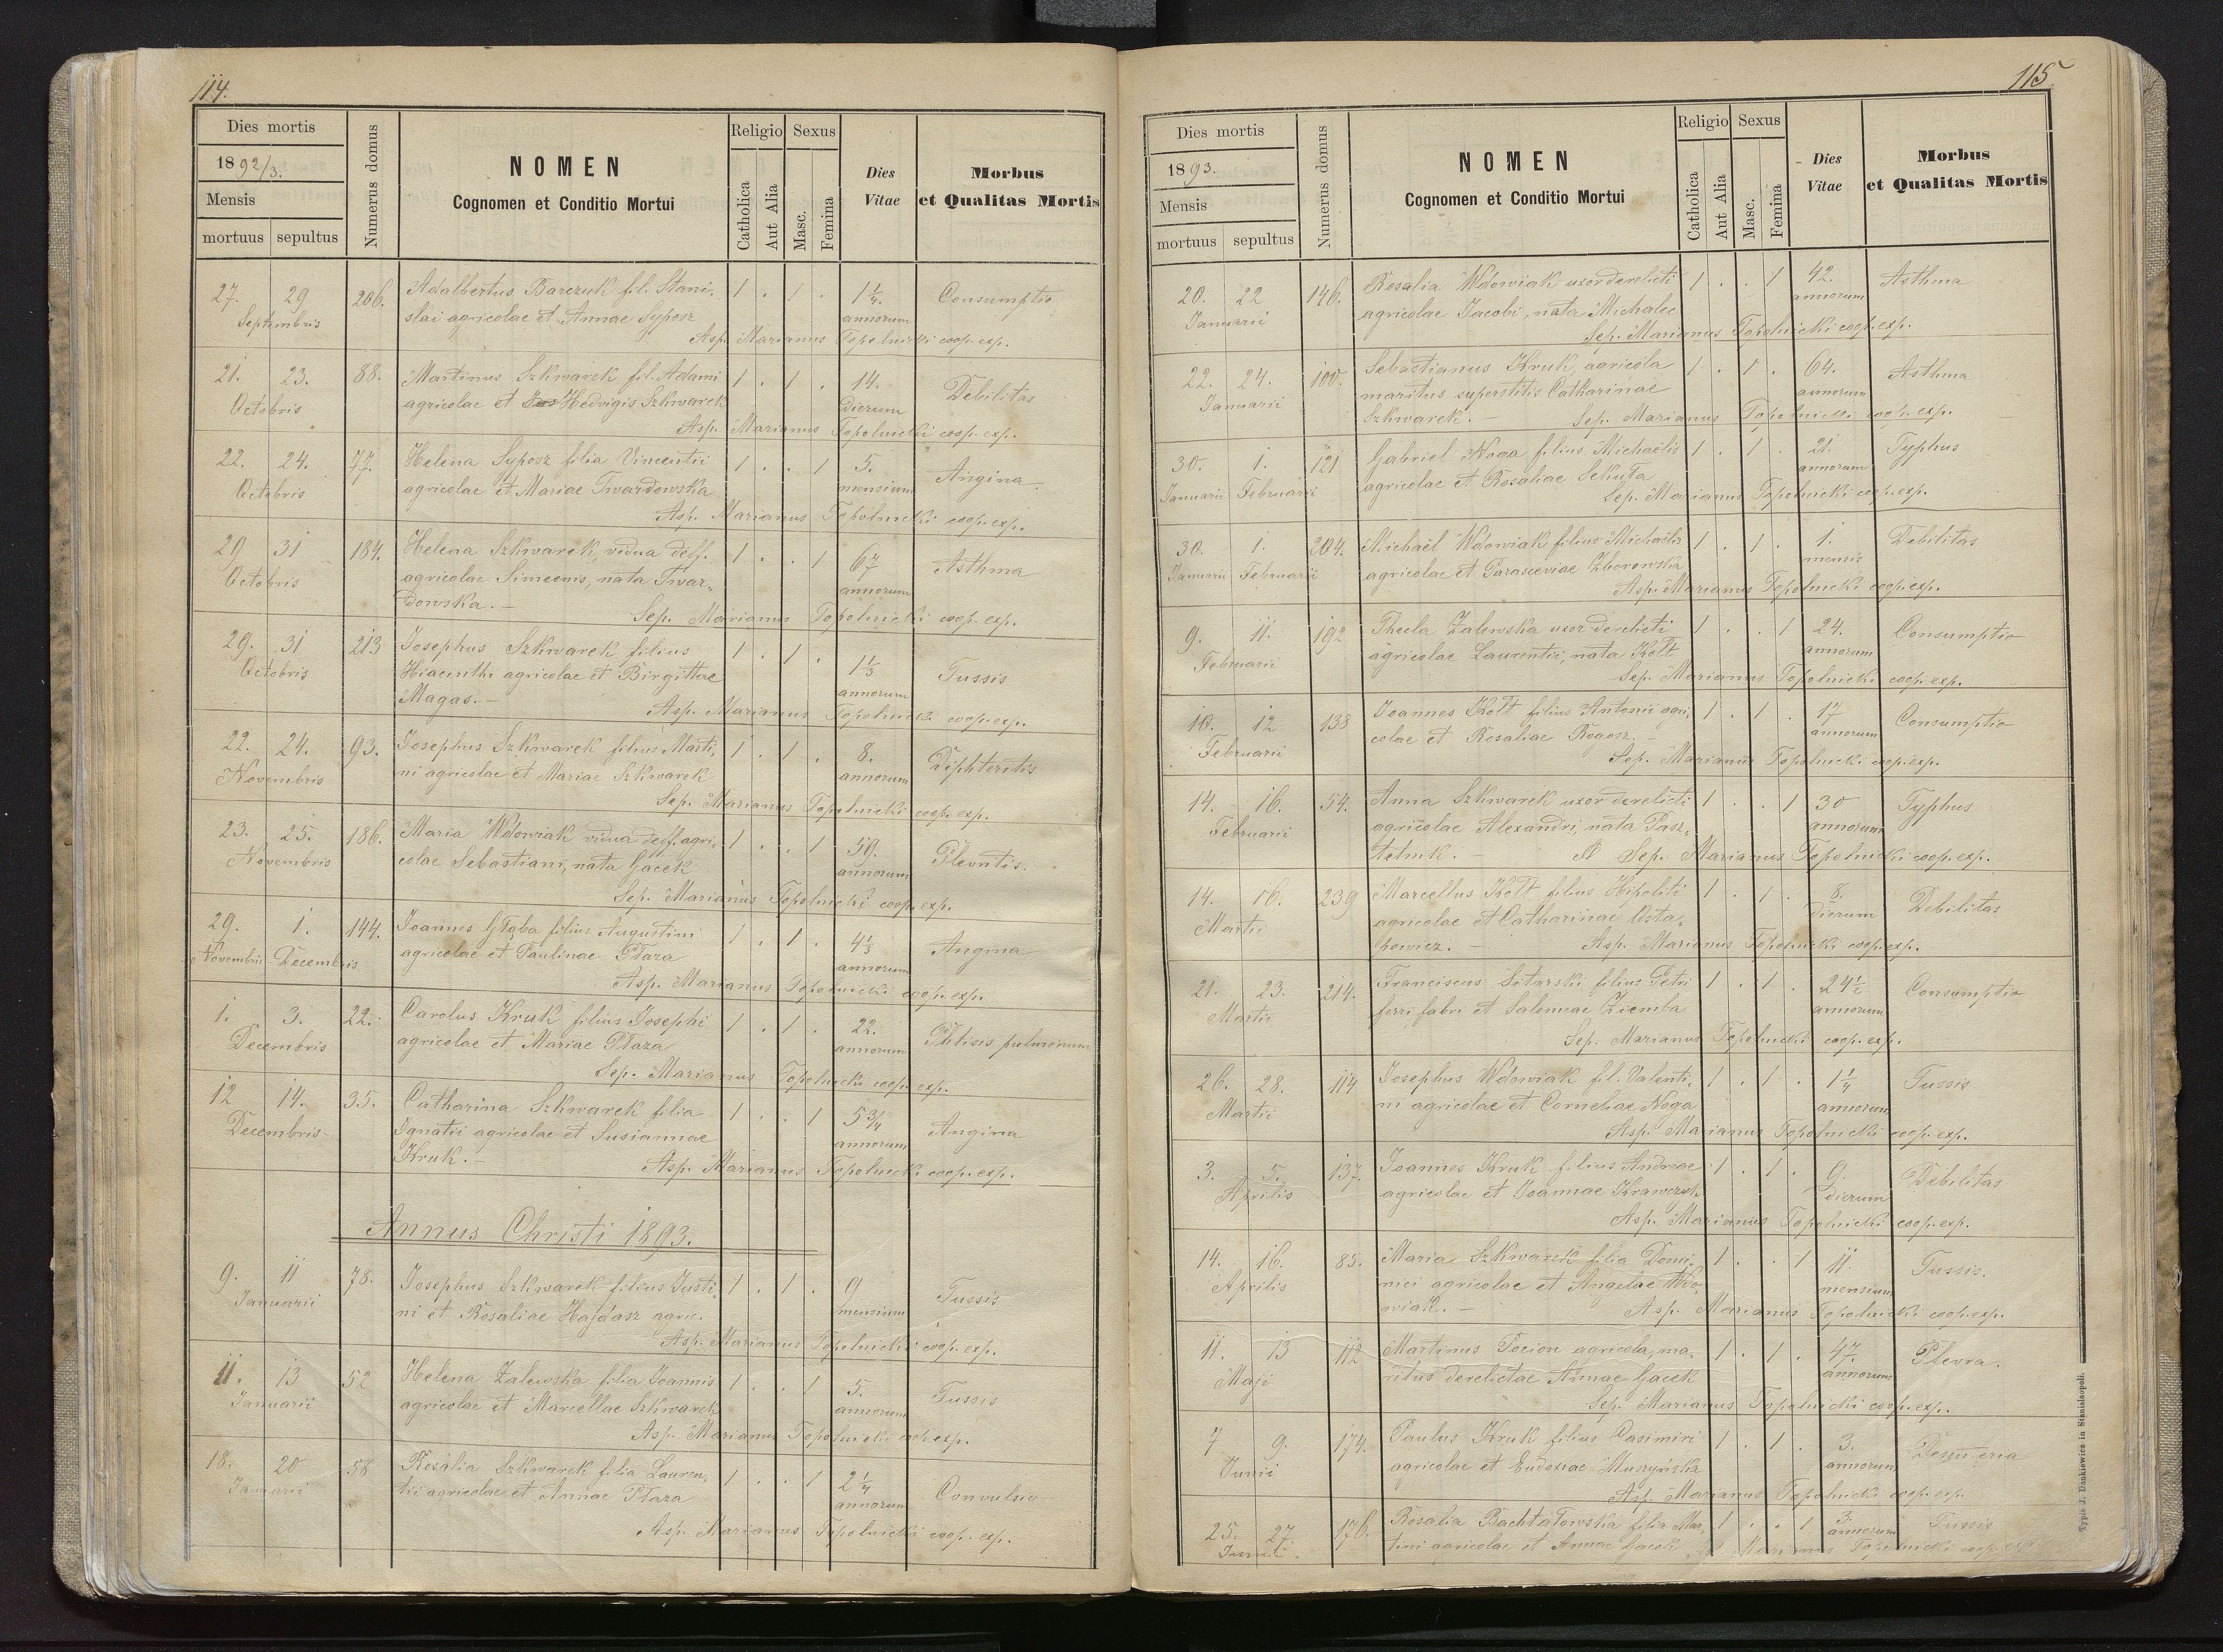 114.
Dies mortis
1892/3.
Mensis
mortuus sepultus
Numerus domus
NOMEN
Cognomen et Conditio Mortui
Religio
Catholica
Aut Alia
Sexus
Masc.
Femina
Dies
Vitae
Morbus
et Qualitas Mortis
27. 29 206. Adalbertus Barczuk fil. Stani- 1 . 1 . 1 1/4. Consumptio
Septembris slai agricolae et Annae Syposz annorum
Asp. Marianus Topolnicki coop. exp.
21. 23. 88. Martinus Szkwarek fil. Adami 1 . 1 . 14. Debilitas
Octobris agricolae et Hedvigis Szkwarek dierum
Asp. Marianus Topolnicki coop. exp.
22. 24. 77. Helena Syposz filia Vincentii 1 . . 1 5. Angina.
Octobris agricolae et Mariae Twardowska mensium
Asp. Marianus Topolnicki coop. exp.
29 31 184. Helena Szkwarek, vidua deff. 1 . . 1 67 Asthma
Octobris agricolae Simeonis, nata Twar- annorum
dowska. –
Sep. Marianus Topolnicki coop. exp.
29. 31 213 Josephus Szkwarek filius 1 . 1 . 1 1/3 Tussis
Octobris Hiacinthi agricolae et Birgittae annorum
Magas. –
Asp. Marianus Topolnicki coop. exp.
22. 24. 93. Josephus Szkwarek filius Marti- 1 . 1 . 8. Diphteritis
Novembris ni agricolae et Mariae Szkwarek annorum
Sep. Marianus Topolnicki coop. exp.
23. 25. 186. Maria Wdowiak vidua deff. agri- 1 . . 1 59. Plevritis.
Novembris colae Sebastiani, nata Gacek annorum
Sep. Marianus Topolnicki coop. exp.
29. 1. 144. Joannes Głąba filius Augustini 1 . 1 . 4 1/3 Angina
Novembris Decembris agricolae et Paulinae Płaza annorum
Asp. Marianus Topolnicki coop. exp.
1. 3. 22. Carolus Kruk filius Josephi 1 . 1 . 22. Phtisis pulmonum
Decembris agricolae et Mariae Płaza annorum
Sep. Marianus Topolnicki coop. exp.
12 14. 35. Catharina Szkwarek filia 1 . . 1 5 3/4 Angina
Decembris Ignatii agricolae et Susannae annorum
Kruk. –
Asp. Marianus Topolnicki coop. exp.
Annus Christi 1893.
9. 11 78. Josephus Szkwarek filius Justi- 1 . 1 . 9 Tussis
Januarii ni et Rosaliae Hajdasz agric. mensium
Asp. Marianus Topolnicki coop. exp.
11. 13 52 Helena Zalewska filia Joannis 1 . . 1 5. Tussis
Januarii agricolae et Marcellae Szkwarek annorum
Asp. Marianus Topolnicki coop. exp.
18. 20 58 Rosalia Szkwarek filia Lauren- 1 . . 1 2 1/4 Convulsio
Januarii tii agricolae et Annae Płaza annorum
Asp. Marianus Topolnicki coop. exp.
115
Dies mortis
1893.
Mensis
mortuus sepultus
Numerus domus
NOMEN
Cognomen et Conditio Mortui
Religio
Catholica
Aut Alia
Sexus
Masc.
Femina
Dies
Vitae
Morbus
et Qualitas Mortis
20. 22 146. Rosalia Wdowiak uxor derelicti 1 . . 1 42. Asthma
Januarii agricolae Jacobi, nata Michalec annorum
Sep. Marianus Topolnicki coop. exp.
22. 24. 100. Sebastianus Kruk, agricola 1 . 1 . 64. Asthma
Januarii maritus superstitis Catharinae annorum
Szkwarek. – Sep. Marianus Topolnicki coop. exp.
30. 1. 121 Gabriel Noga filius Michaëlis 1 . 1 . 21. Typhus
Januarii Februarii agricolae et Rosaliae Sekuła annorum
Sep. Marianus Topolnicki coop. exp.
30. 1. 204. Michaël Wdowiak filius Michaëlis 1 . 1 . 1. Debilitas
Januarii Februarii agricolae et Parasceviae Zborowska mensis
Asp. Marianus Topolnicki coop. exp.
9. 11. 192 Thecla Zalewska uxor derelicti 1 . . 1 24. Consumptio
Februarii agricolae Laurentii, nata Kołt annorum
Sep. Marianus Topolnicki coop. exp.
10. 12 138 Joannes Kołt filius Antonii agri- 1 . 1 . 17 Consumptio
Februarii colae et Rosaliae Rogosz. – annorum
Sep. Marianus Topolnicki coop. exp.
14. 16. 54. Anna Szkwarek uxor derelicti 1 . . 1 30 Typhus
Februarii agricolae Alexandri, nata Pasz- annorum
tetnik. – Sep. Marianus Topolnicki coop. exp.
14. 16. 239 Marcellus Kołt filius Hipoliti 1 . 1 . 8. Debilitas
Martii agricolae et Catharinae Osta- dierum
powicz. – Asp. Marianus Topolnicki coop. exp.
21. 23. 214. Franciscus Sitarski filius Petri 1 . 1 . 24 1/2 Consumptio
Martii ferri fabri et Salomeae Ziemba annorum
Sep. Marianus Topolnicki coop. exp.
26. 28. 114 Josephus Wdowiak fil. Valenti- 1 . 1 . 1 1/4 Tussis
Martii ni agricolae et Corneliae Noga annorum
Asp. Marianus Topolnicki coop. exp.
3. 5. 137. Joannes Kruk filius Andreae 1 . 1 . 9. Debilitas
Aprilis agricolae et Joannae Krawczyk dierum
Asp. Marianus Topolnicki coop. exp.
14. 16. 85. Maria Szkwarek filia Domi- 1 . . 1 11. Tussis.
Aprilis nici agricolae et Angelae Wdo- mensium
wiak. – Asp. Marianus Topolnicki coop. exp.
11. 13 112 Martinus Pocion agricola, ma- 1 . 1 . 47. Plevra.
Maji ritus derelictae Annae Gacek annorum
Sep. Marianus Topolnicki coop. exp.
7 9. 174. Paulus Kruk filius Casimiri 1 . 1 . 3.
Junii agricolae et Eudoxiae Muszyńska annorum
Asp. Marianus Topolnicki coop. exp.
25. 27. 176. Rosalia Bachtałowska filia Mar- 1 . . 1 3. Tussis
Junii tini agricolae et Annae Gacek annorum
Marianus Topolnicki coop. exp.
Typis J. Dankiewicz in Stanislaopoli.